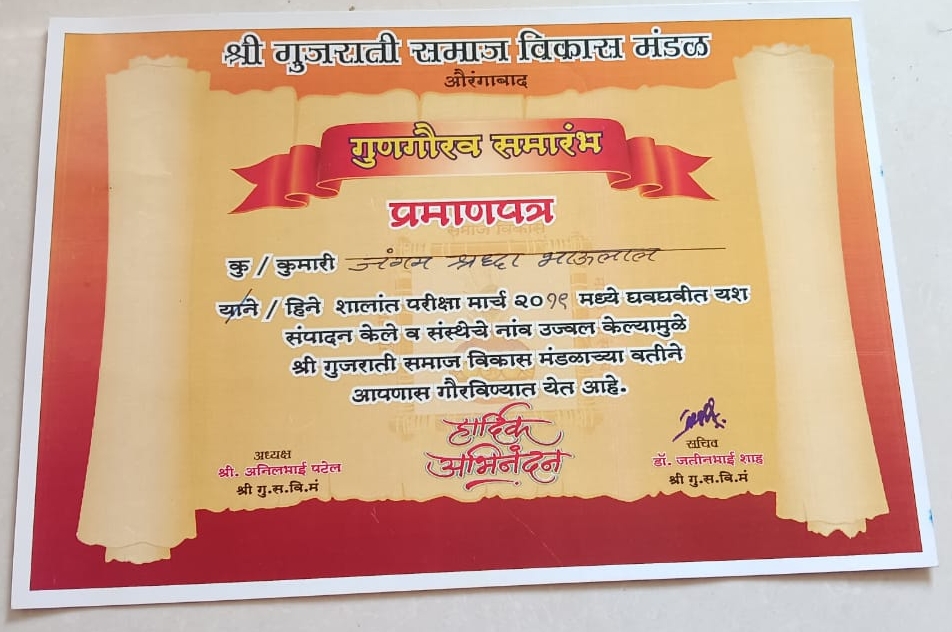 श्री गुजराती समाज विकास मंडळ
औरंगाबाद
गुणगौरव समारंभ
प्रमाणपत्र
समाज विकास
कु / कुमारी जंगम श्रध्दा भाऊलाल
याने / हिने शालांत परीक्षा मार्च २०१९ मध्ये घवघवीत यश
संपादन केले व संस्थेचे नांव उज्वल केल्यामुळे
श्री गुजराती समाज विकास मंडळाच्या वतीने
आपणास गौरविण्यात येत आहे.
हार्दिक
अभिनंदन
अध्यक्ष
श्री. अनिलभाई पटेल
श्री गु.स.वि.मं
सचिव
डॉ. जतीनभाई शाह
श्री गु.स.वि.मं